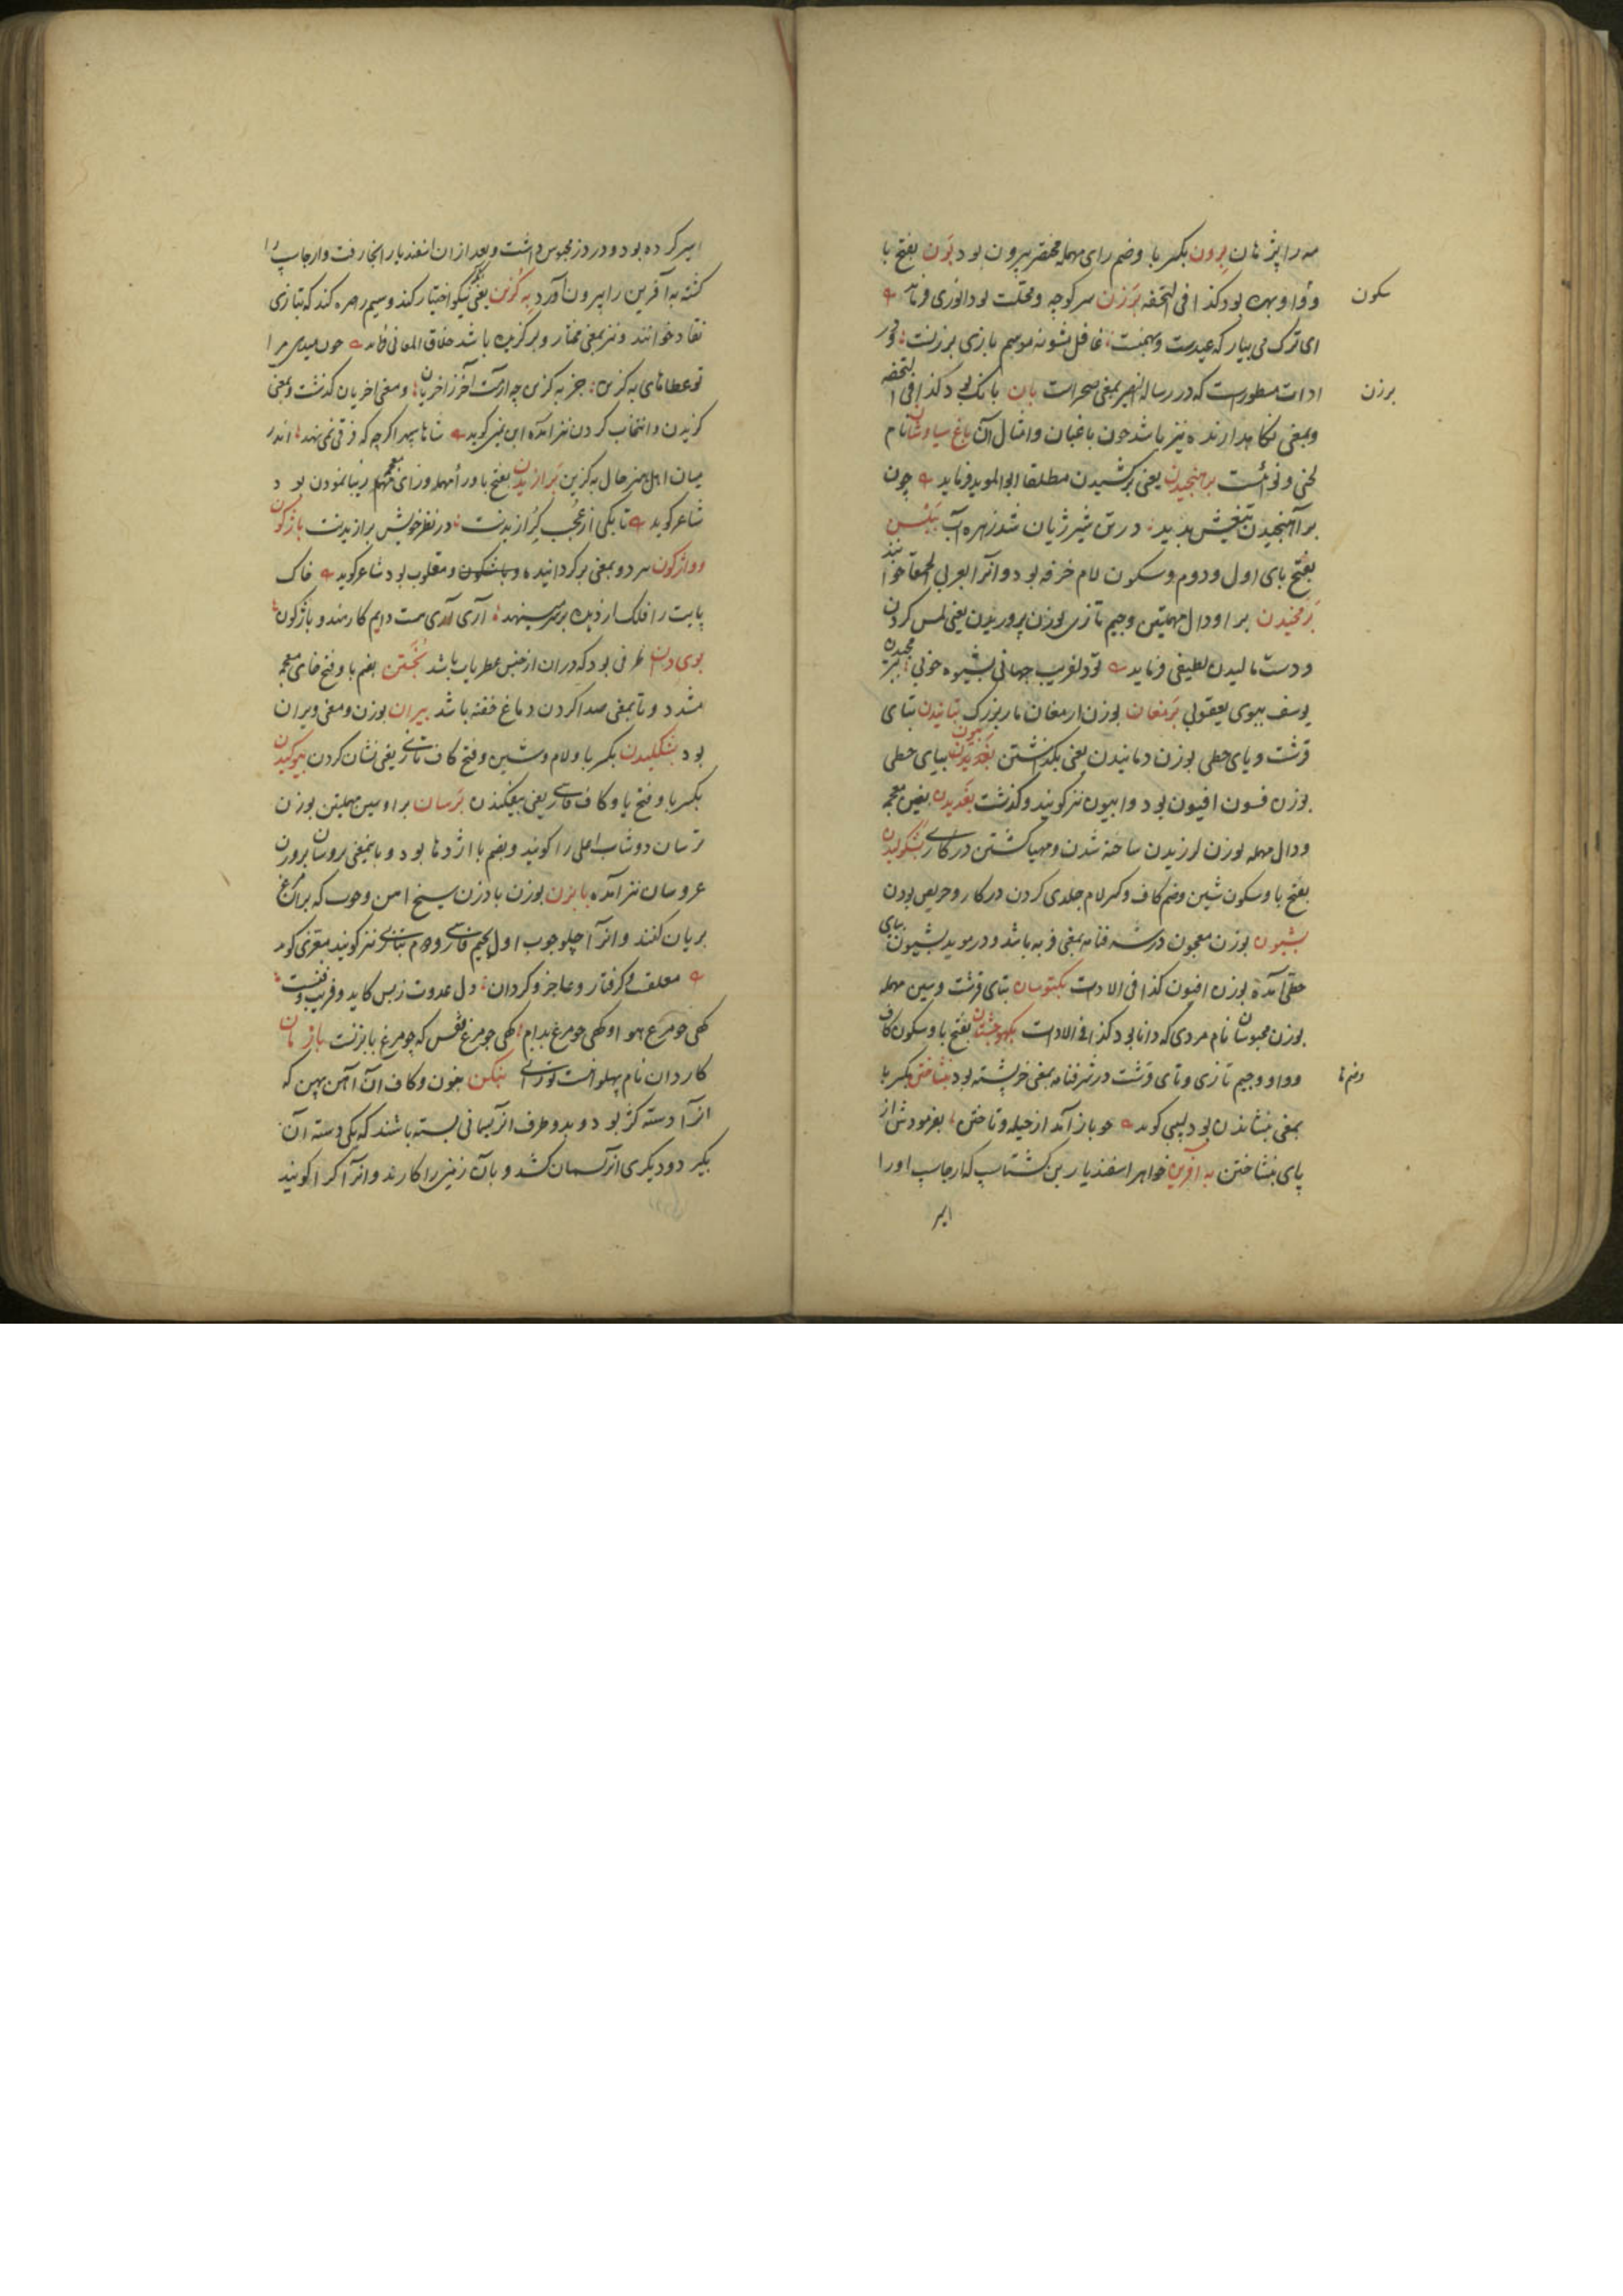 مه را پژهان برون بکسر با وضم رای مهمله مختصر بیرون بود بون بفتح با
و واو بهره بود کذا فی التحفه برزن سر کوچه و محلت بود انوری فرماید
ای ترک می بیار که عیدست و بهمنست غافل مشو نه موسم بازی برزنست و در
ادات مسطورست که در رساله النصیر بمعنی صحراست بان بانک بود کذا فی التحفه
و بمعنی نکاهدارنده نیز باشد چون باغبان و امثال آن باغ سیاوشان نام
لحنی و نوائست برهنجیدن یعنی برکشیدن مطلقا ابوالموید فرماید چون
برآهنجیدن تیغش بدید در تن شیر ژیان شد زهره آب
بفتح بای اول و دوم و سکون لام خرفه بود و آنرا بعربی الحمقا خوانند
برمخیدن برا و دال مهملتین و جیم تازی بوزن پروریدن یعنی لمس کردن
و دست مالیدن لطیفی فرماید تو دلفریب جهانی بشیوه خوبی
یوسف ببوی یعقوبی برمغان بوزن ارمغان مار بزرک تبانیدن بتای
قرشت و یای حطی بوزن دمانیدن یعنی بکذشتن بیون بیای حطی
بوزن فسون افیون بود و ابیون نیز کویند و کذشت بغدیدن بغین معجمه
و دال مهمله بوزن لرزیدن ساخته شدن و مهیا کشتن در کاری بشکولیدن
بفتح با و سکون شین و ضم کاف و کسر لام جلدی کردن در کار و حریص بودن
بشبون بوزن معجون در شرفنامه بمعنی فربه باشد و در موید بشیون بیای
حطی آمده بوزن افیون کذا فی الادات بکتوسان بتای قرشت و سین مهمله
بوزن محبوسان نام مردی که دانا بود کذا فی الادات بفتح با و سکون کاف
و واو و جیم تازی و تای قرشت در شرفنامه بمعنی خرپشته بود بنشاختن بکسر با
بمعنی بنشاندن بود لبیبی کوید چو باز آمد از حیله و تاختن بفرمودش از
پای بنشاختن به آفرین خواهر اسفندیار بن کشتاسب که ارجاسپ او را
اسیر
سکون
برزن
وضم ها
اسیر کرده بود و در دز محبوس داشت و بعد از آن اسفندیار آنجا رفت و ارجاسپ را
کشته به آفرین را بیرون آورد به کزین یعنی نیکو اختیار کند و سیم و سره کند که بتازی
نقاد خوانند و نیز بمعنی مختار و برکزیده باشد خلاق المعانی فرماید چون میدهی مرا
تو عطاهای به کزین جز به کزین چه آرمت آخر ز آخریان و معنی آخریان کذشت و بمعنی
کزیدن و انتخاب کردن نیز آمده ابن یمین کوید شاها سپهر اکرچه که فرقی نمی نهد اندر
میان اهل هنر حال به کزین برازیدن بفتح با و را مهمله و زای معجمه زیبا نمودن بود
شاعر کوید تا یکی از عجب کرازیدنت در نظر خویش برازیدنت باژکون
و واژکون هر دو بمعنی برکردانیده و باشکون و مقلوب بود شاعر کوید خاک
پایت را فلک ار دیده بر سر مینهد آری آری هست دایم کار هند و باژکون
بوی دان ظرفی بود که در آن از جنس عطریات باشد بختن بضم با و فتح خای معجمه
مشدد و تا بمعنی صدا کردن دماغ خفته باشد بیران بوزن و معنی ویران
بود بشکلیدن بکسر با و لام و شین و فتح کاف تازی یعنی نشان کردن بیوکندن
بکسر با و فتح یا و کاف فارسی یعنی بیفکندن برسان برا و سین مهملتین بوزن
ترسان دوشاب اصلی را کویند و بضم با اژدها بود و بمعنی بروسان بروزن
عروسان نیز آمده بابزن بوزن بادزن سیخ آهن و چوب که بر آن مرغ
بریان کنند و آنرا چلوچوب اول بجیم فارسی و دوم بتازی نیز کویند معزی کوید
معلق و کرفتار و عاجز و کردان دل عدوت ز بس کاید و فریب و فنست
کهی چو مرغ هوا و کهی چو مرغ بدام کهی چو مرغ قفس که چو مرغ بابزنست بازمان
کاردان نام پهلوانست تورانی بنکن بنون و کاف آن آهن پهن که
آنرا دسته کژ بود و بدو طرف آن ریسمانی بسته باشند که یکی دسته آن
بکیرد و دیکری آن ریسمان کشد و بآن زمین را کارند و آنرا کرا کویند